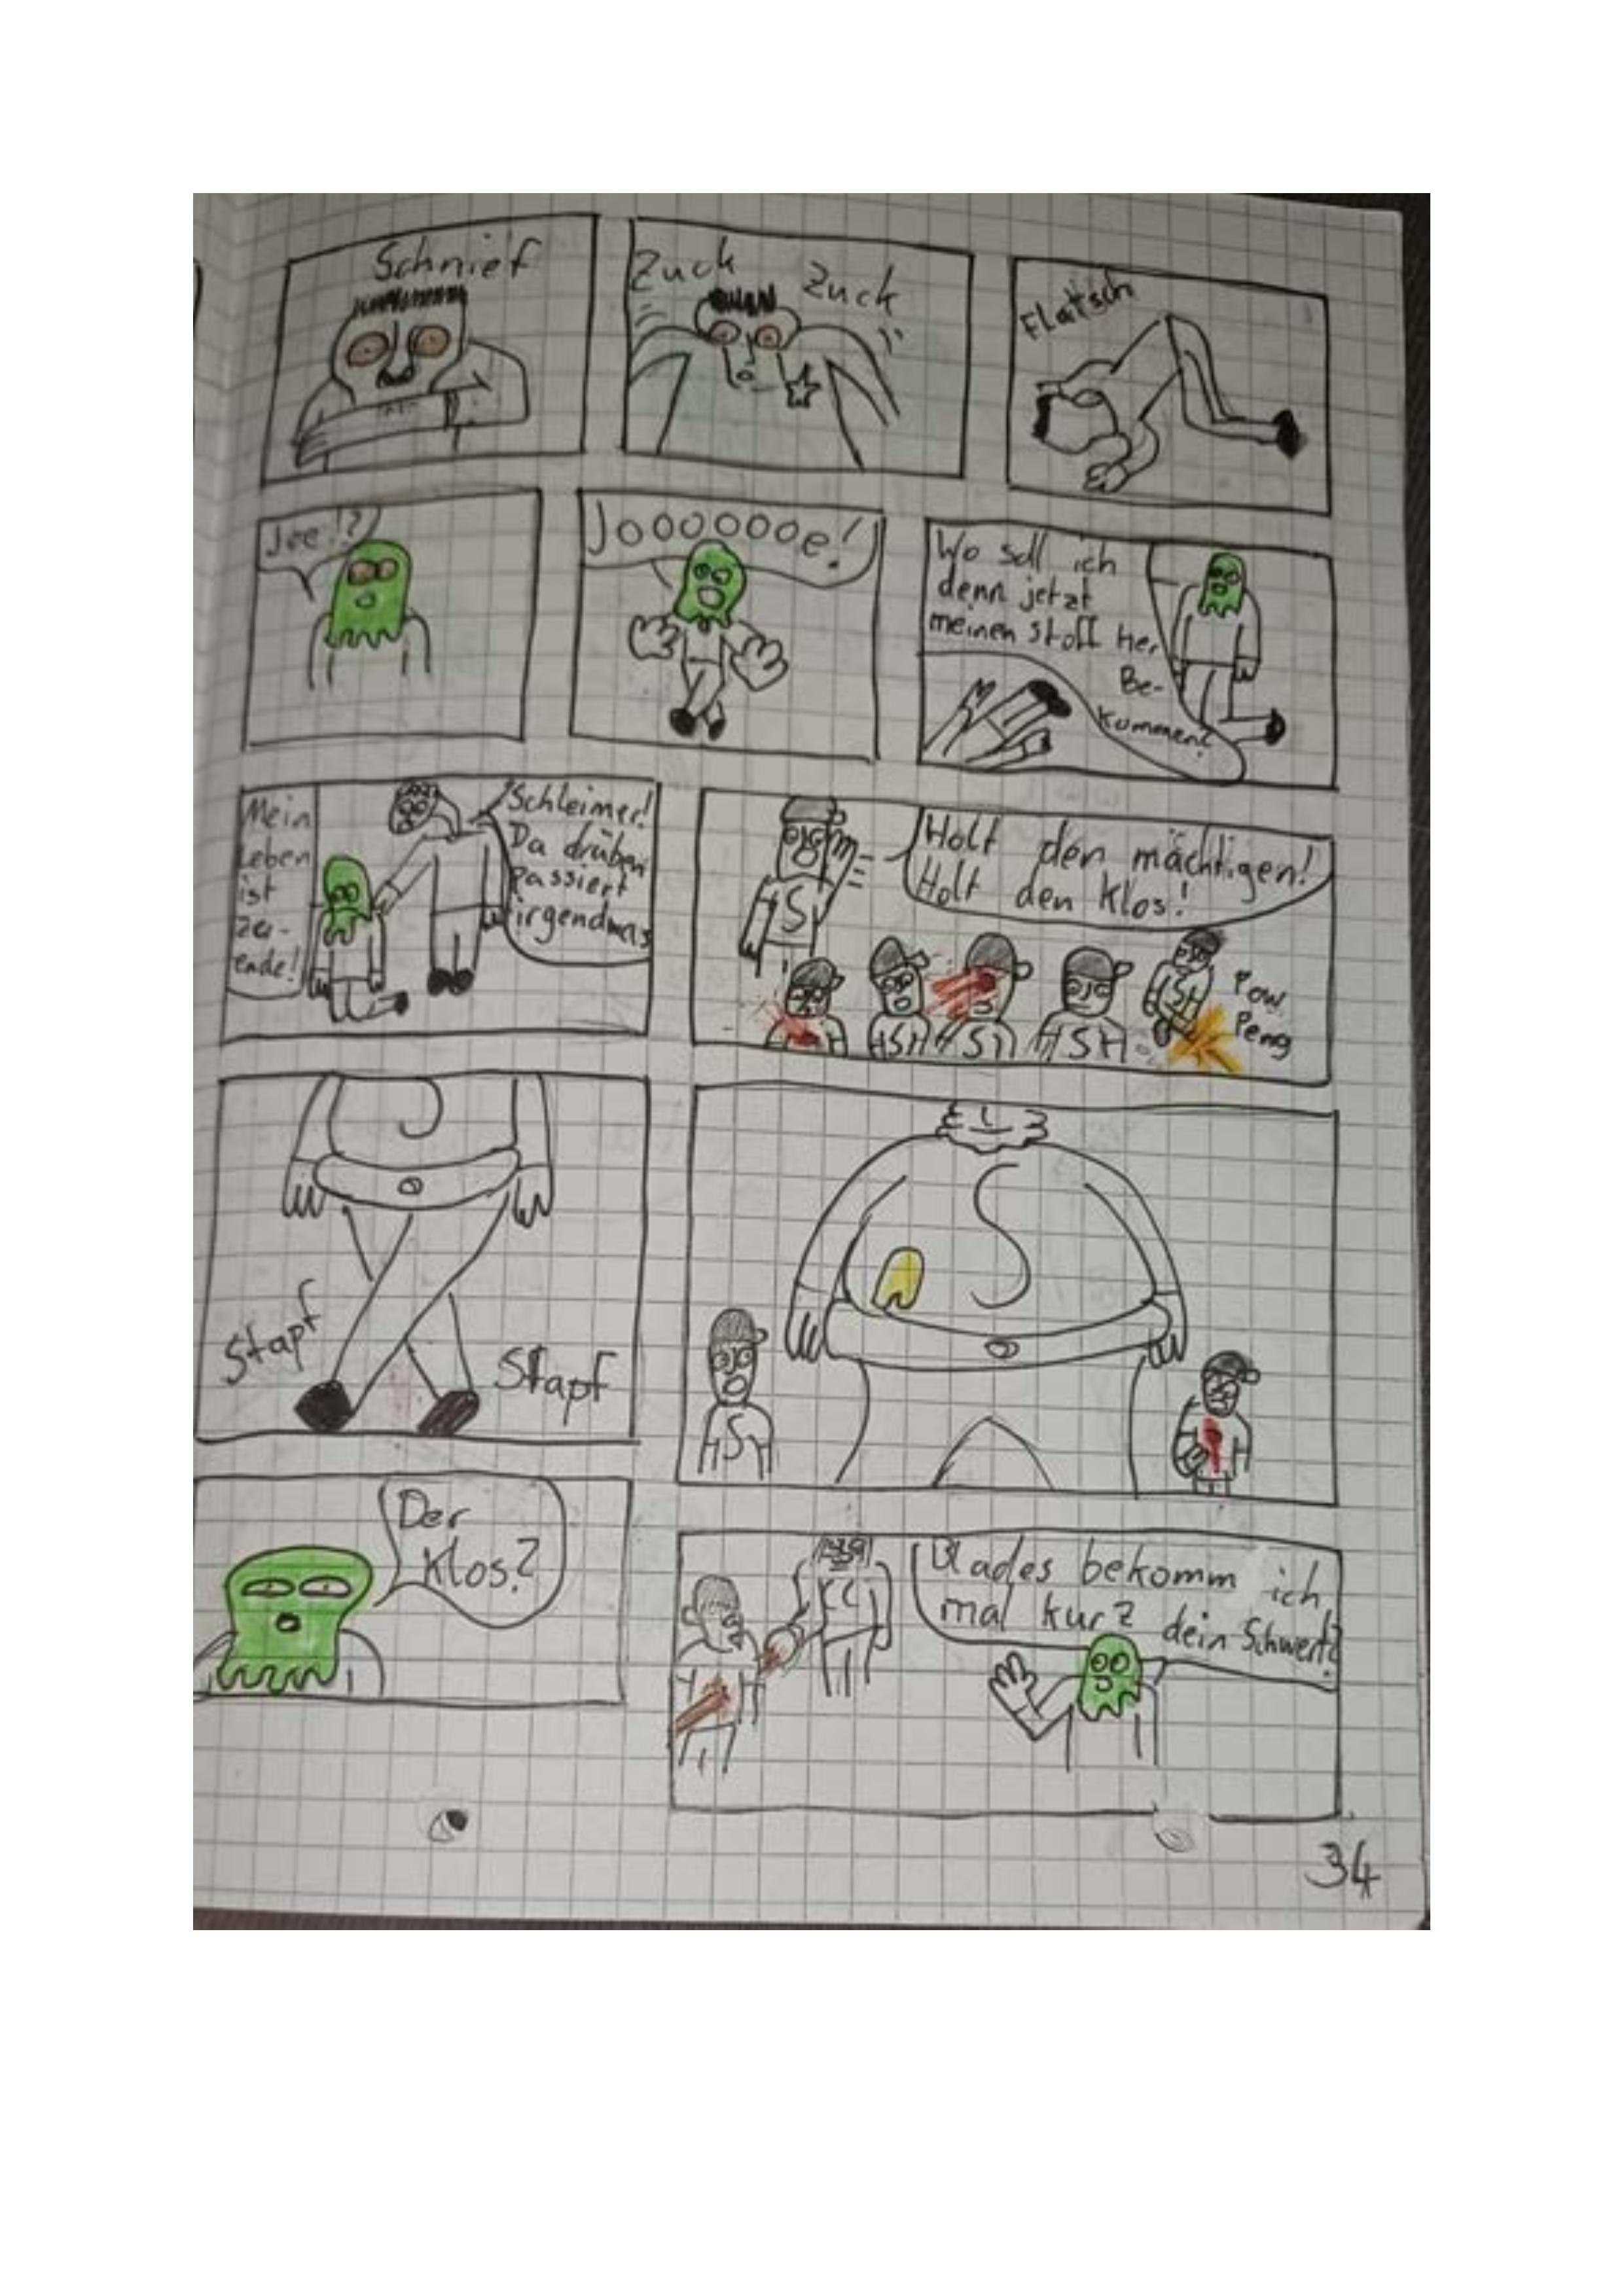 Schnief
Zuck Zuck
Flatsch
Joe!?
Jooooooe!
Wo soll ich
denn jetzt
meinen Stoff Her
Be-
kommen?
Mein
Leben
ist
zu-
ende!
Schleimer!
Da drüben
Passiert
irgendwas
Holt den mächtigen!
Holt den Klos!
S
S
S
S
S
Pow
Peng
Stapf
Stapf
S
S
Der
Klos?
Blades bekomm ich
mal kurz dein Schwert?
34